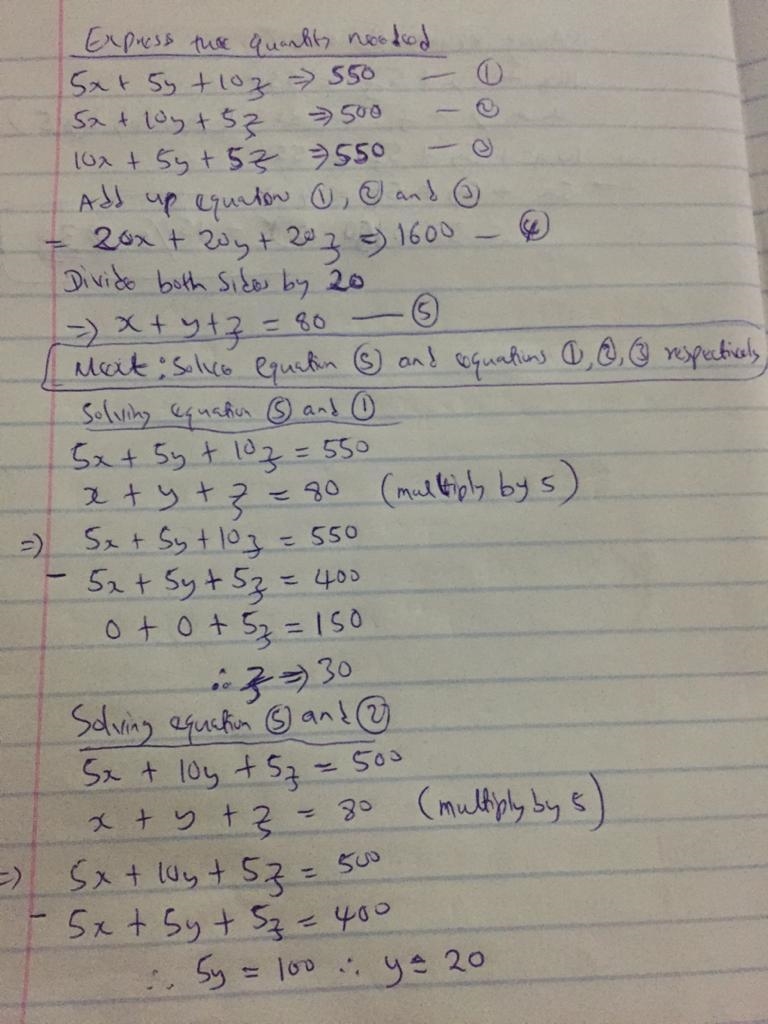 Express the quantity needed
5x + 5y + 10z ⇒ 550 — ①
5x + 10y + 5z ⇒ 500 — ②
10x + 5y + 5z ⇒ 550 — ③
Add up equation ①, ② and ③
= 20x + 20y + 20z ⇒ 1600 — ④
Divide both sides by 20
⇒ x + y + z = 80 — ⑤
Next: Solve equation ⑤ and equations ①, ②, ③ respectively
Solving equation ⑤ and ①
5x + 5y + 10z = 550
x + y + z = 80 (multiply by 5)
⇒ 5x + 5y + 10z = 550
- 5x + 5y + 5z = 400
0 + 0 + 5z = 150
∴ z ⇒ 30
Solving equation ⑤ and ②
5x + 10y + 5z = 500
x + y + z = 80 (multiply by 5)
⇒ 5x + 10y + 5z = 500
- 5x + 5y + 5z = 400
∴ 5y = 100 ∴ y = 20